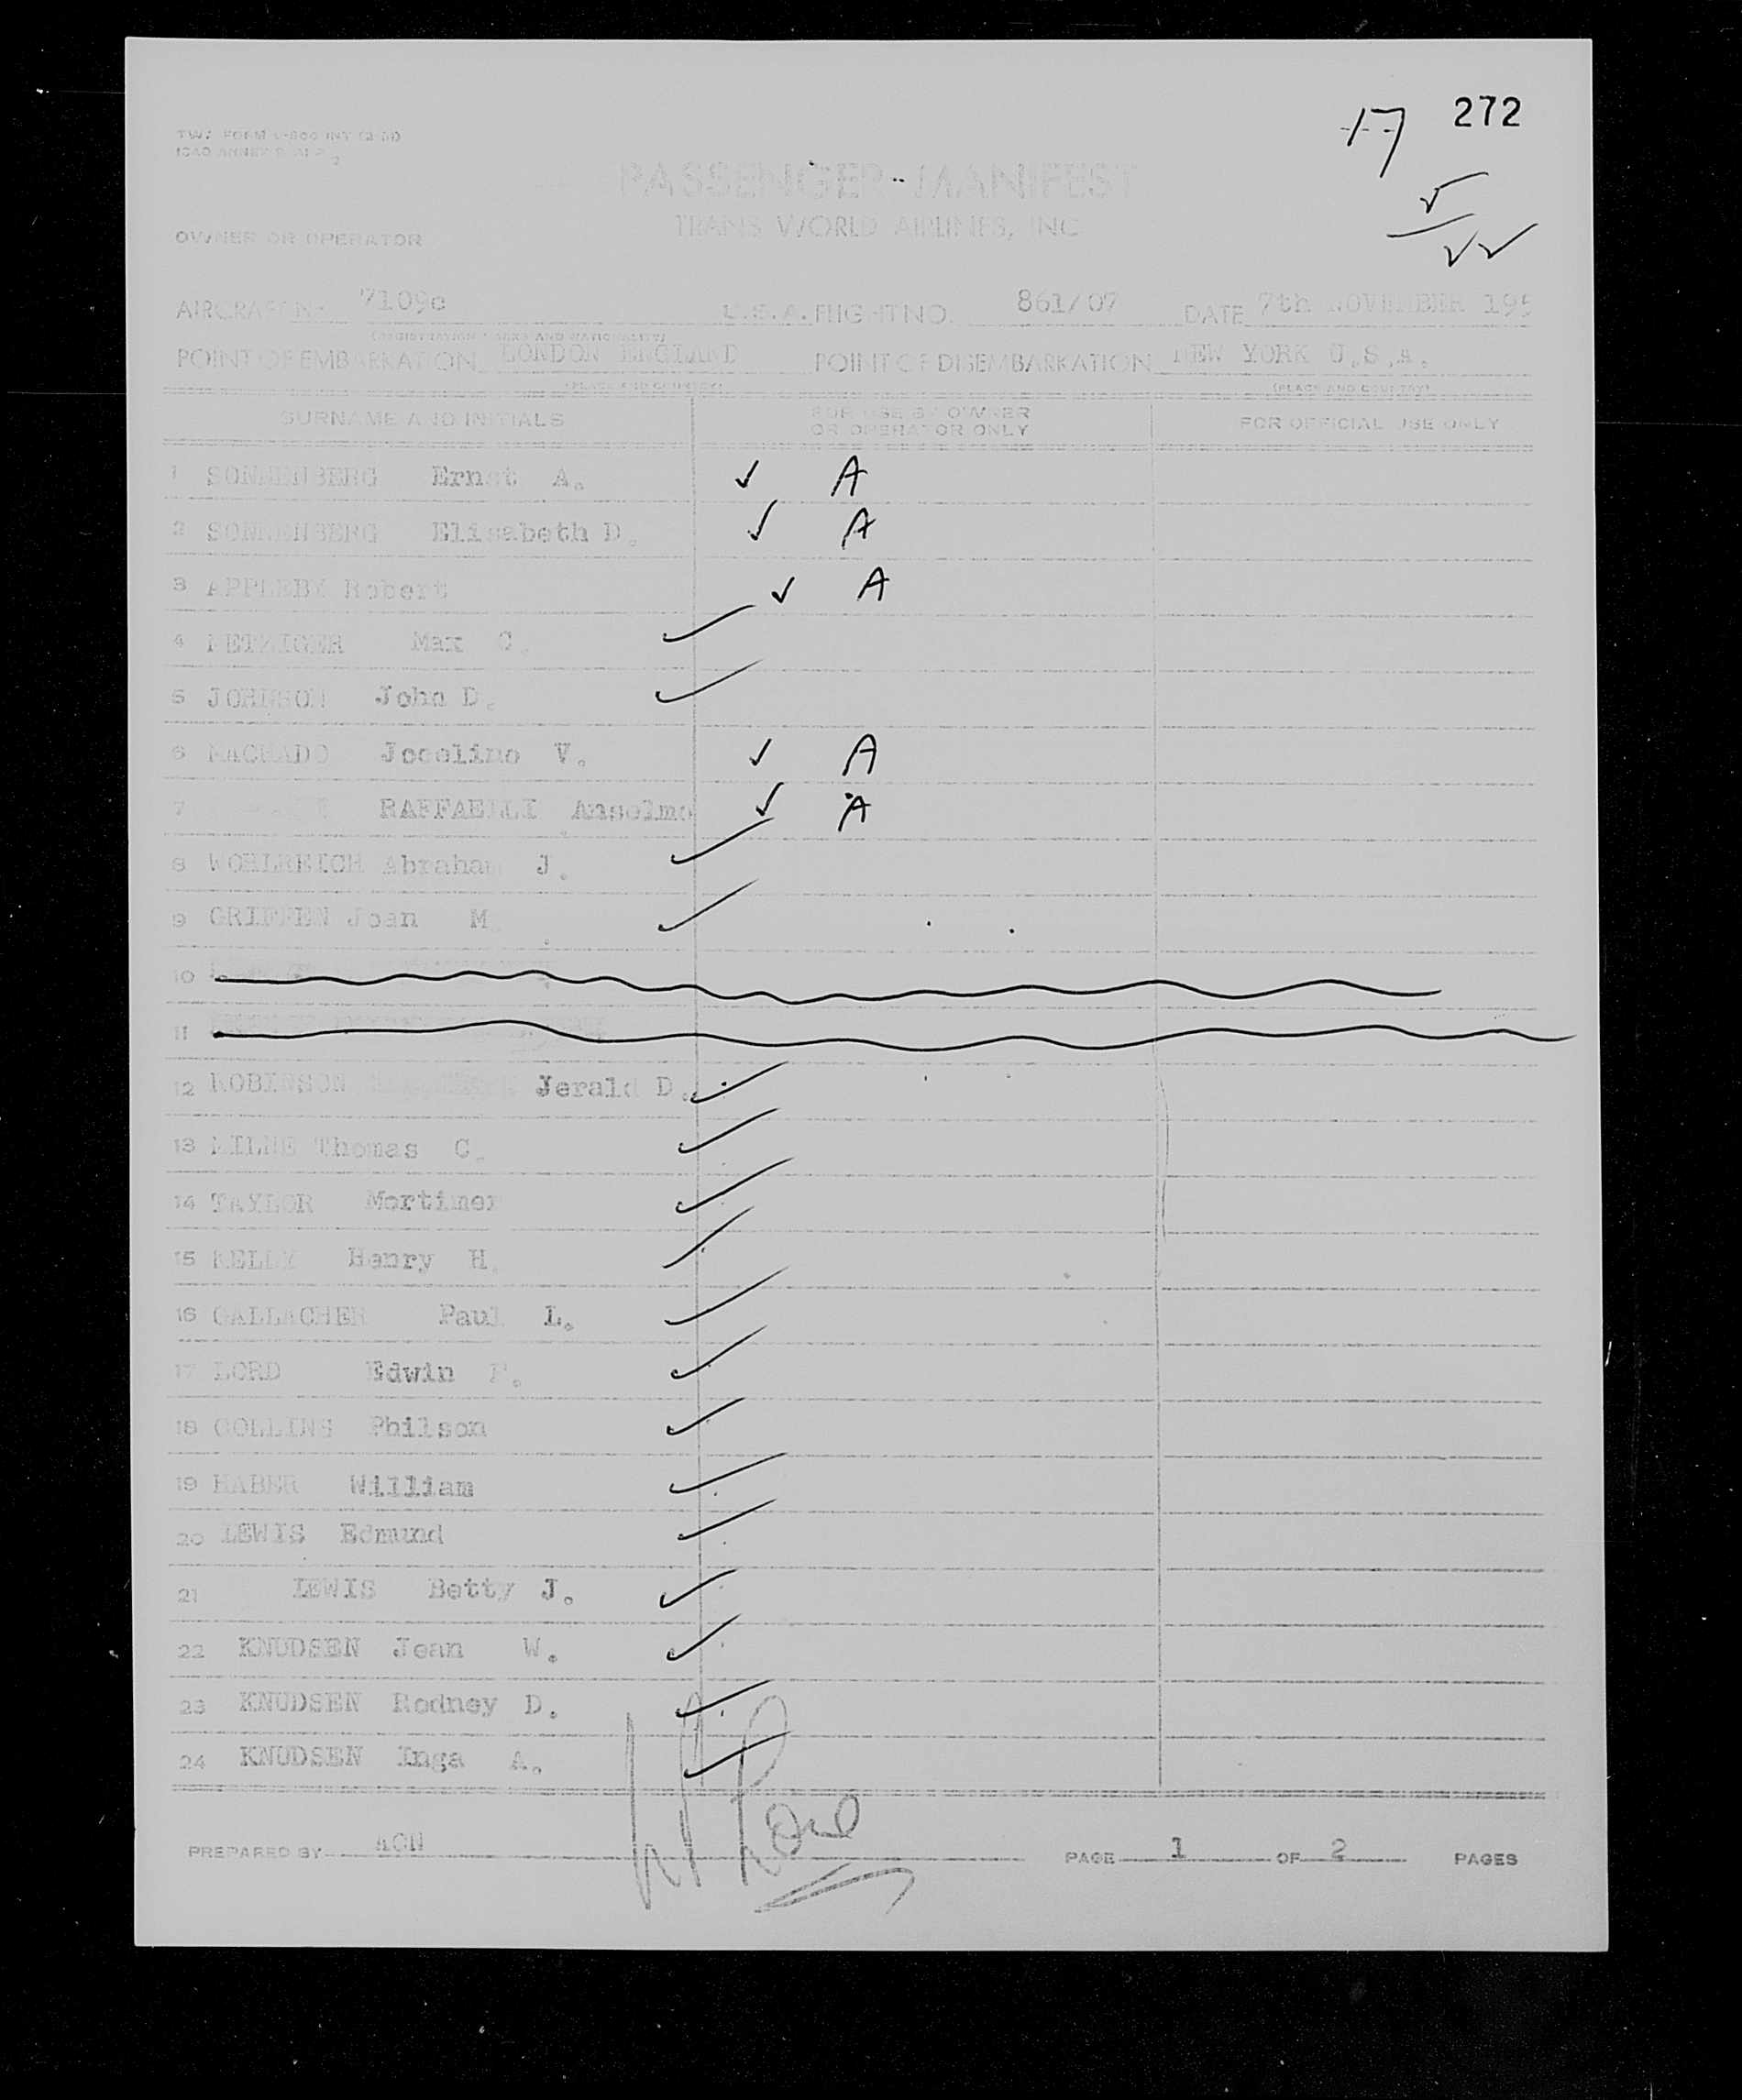 17 272
PASSENGER MANIFEST
TRANS WORLD AIRLINES, INC
OWNER OR OPERATOR
AIRCRAFT 7109c U.S.A. FLIGHT NO. 861/07 DATE 7th NOVEMBER 195
(REGISTRATION MARKS AND NATIONALITY)
POINT OF EMBARKATION LONDON ENGLAND POINT OF DISEMBARKATION NEW YORK U.S.A.
(PLACE AND COUNTRY) (PLACE AND COUNTRY)
SURNAME AND INITIALS FOR USE BY OWNER FOR OFFICIAL USE ONLY
OR OPERATOR ONLY
1 SONNENBERG Ernst A. ✓ A
2 SONNENBERG Elisabeth D. ✓ A
3 APPLEBY Robert ✓ A
4 Max C. ✓
5 JOHNSON John D. ✓
6 MACHADO Jocelino V. ✓ A
7 RAFFAELLI Anselmo ✓ A
8 WOHLREICH Abraham J. ✓
9 GRIFFEN Joan M ✓
10
11
12 ROBINSON Jerald D. ✓
13 MILNE Thomas C. ✓
14 TAYLOR Mortimer ✓
15 KELLY Henry H. ✓
16 GALLACHER Paul L. ✓
17 LORD Edwin F. ✓
18 COLLINS Philson ✓
19 HABER William ✓
20 LEWIS Edmund ✓
21 LEWIS Betty J. ✓
22 KNUDSEN Jean W. ✓
23 KNUDSEN Rodney D. ✓
24 KNUDSEN Inga A. ✓
PREPARED BY PAGE 1 OF 2 PAGES